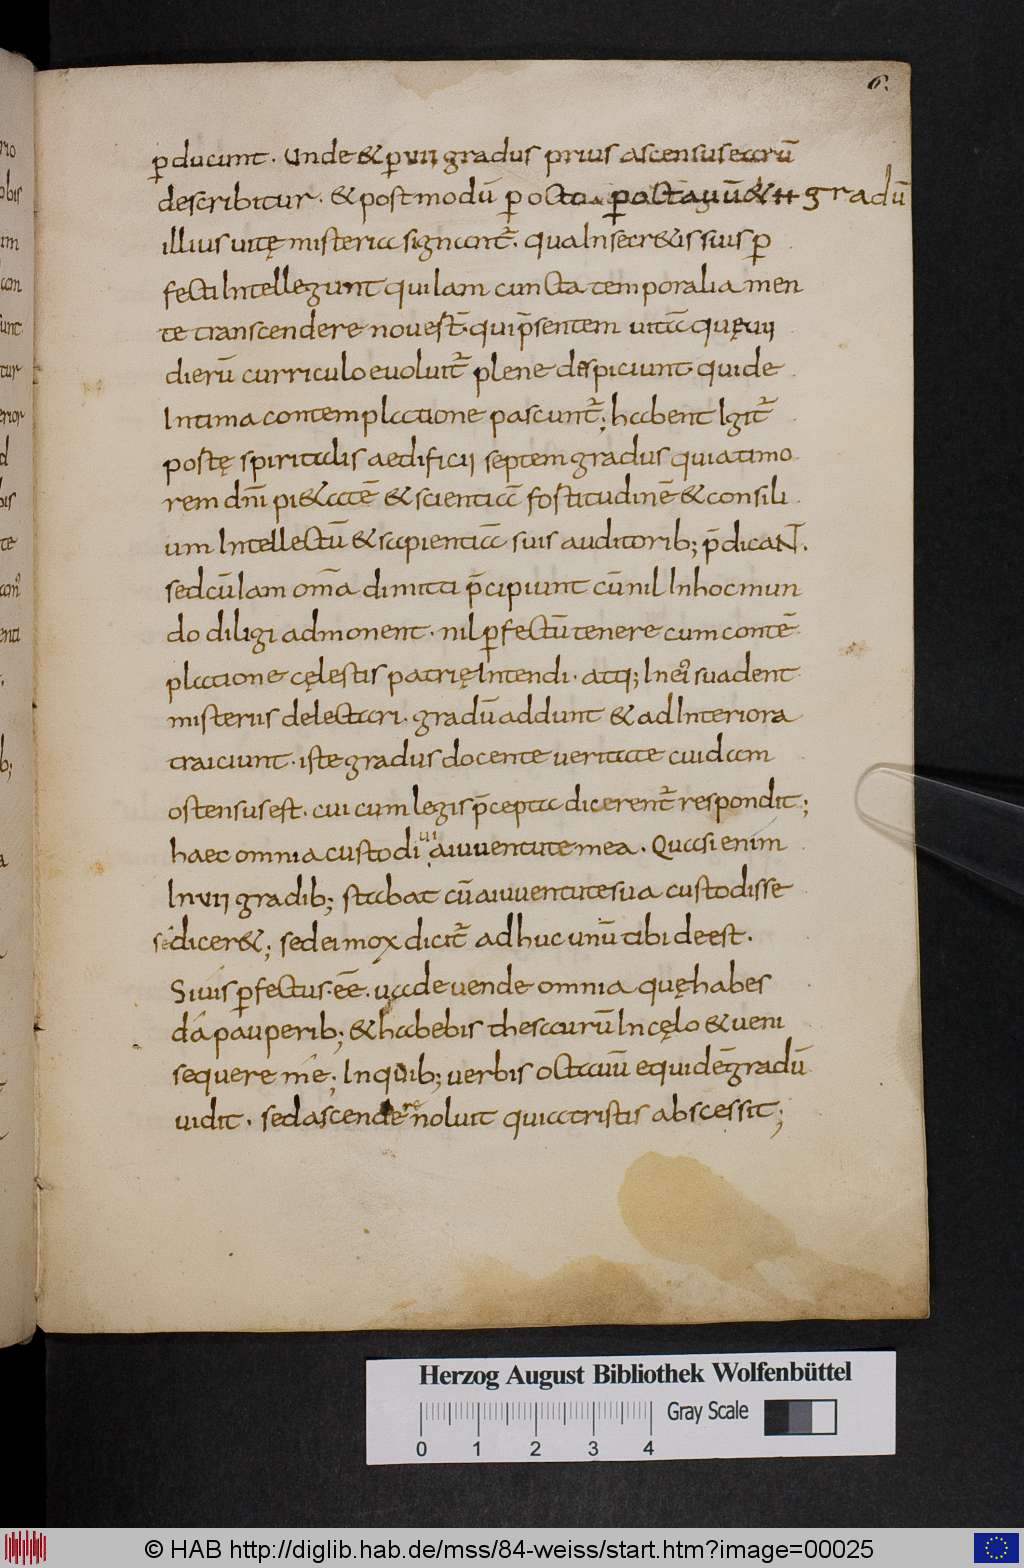 6.
ꝑducunt. Unde & ꝑ vii gradus prius ascensus earū
describitur. & postmodū ꝑ octo ꝑ octauū & gradū
illius uitę misteria signant̄. qua In secr&is suis ꝑ
fecti Intellegunt qui Iam cuncta temporalia men
te transcendere noues̄t. qui p̄sentem uitā quę vii
dierū curriculo euoluit̄ plene despiciunt qui de
Intima contemplatione pascunt̄; habent Igit̄
postę spiritalis aedificii septem gradus quia timo
rem dn̄i pi&atē & scientiā fostitudinē & consili
um Intellectū & sapientiā suis auditorib; p̄dicaNT.
sed cū Iam om̄a dimitti p̄cipiunt cū nil In hoc mun
do diligi admonent. nil ꝑfectū tenere cum contē
platione cęlestis patrię Intendi. atq; In ei' suadent
misteriis delectari. gradū addunt & ad Interiora
traiciunt. iste gradus docente veritate cuidam
ostensus est. cui cum legis p̄cepta dicerent̄ respondit;
haec omnia custodiui a iuuentute mea. Quasi enim
In vii gradib; stabat cū a iuuentute sua custodisse
se dicer&; sed ei mox dicit̄ adhuc unū tibi deest.
Si uis ꝑfectus. eē. uade vende omnia quę habes
da pauperib; & habebis thesaurū In cęlo & veni
sequere me; In quib; verbis octauū equidē gradū
vidit. sed ascendere noluit quia tristis abscessit;
Herzog August Bibliothek Wolfenbüttel
Gray Scale
0 1 2 3 4
© HAB http://diglib.hab.de/mss/84-weiss/start.htm?image=00025